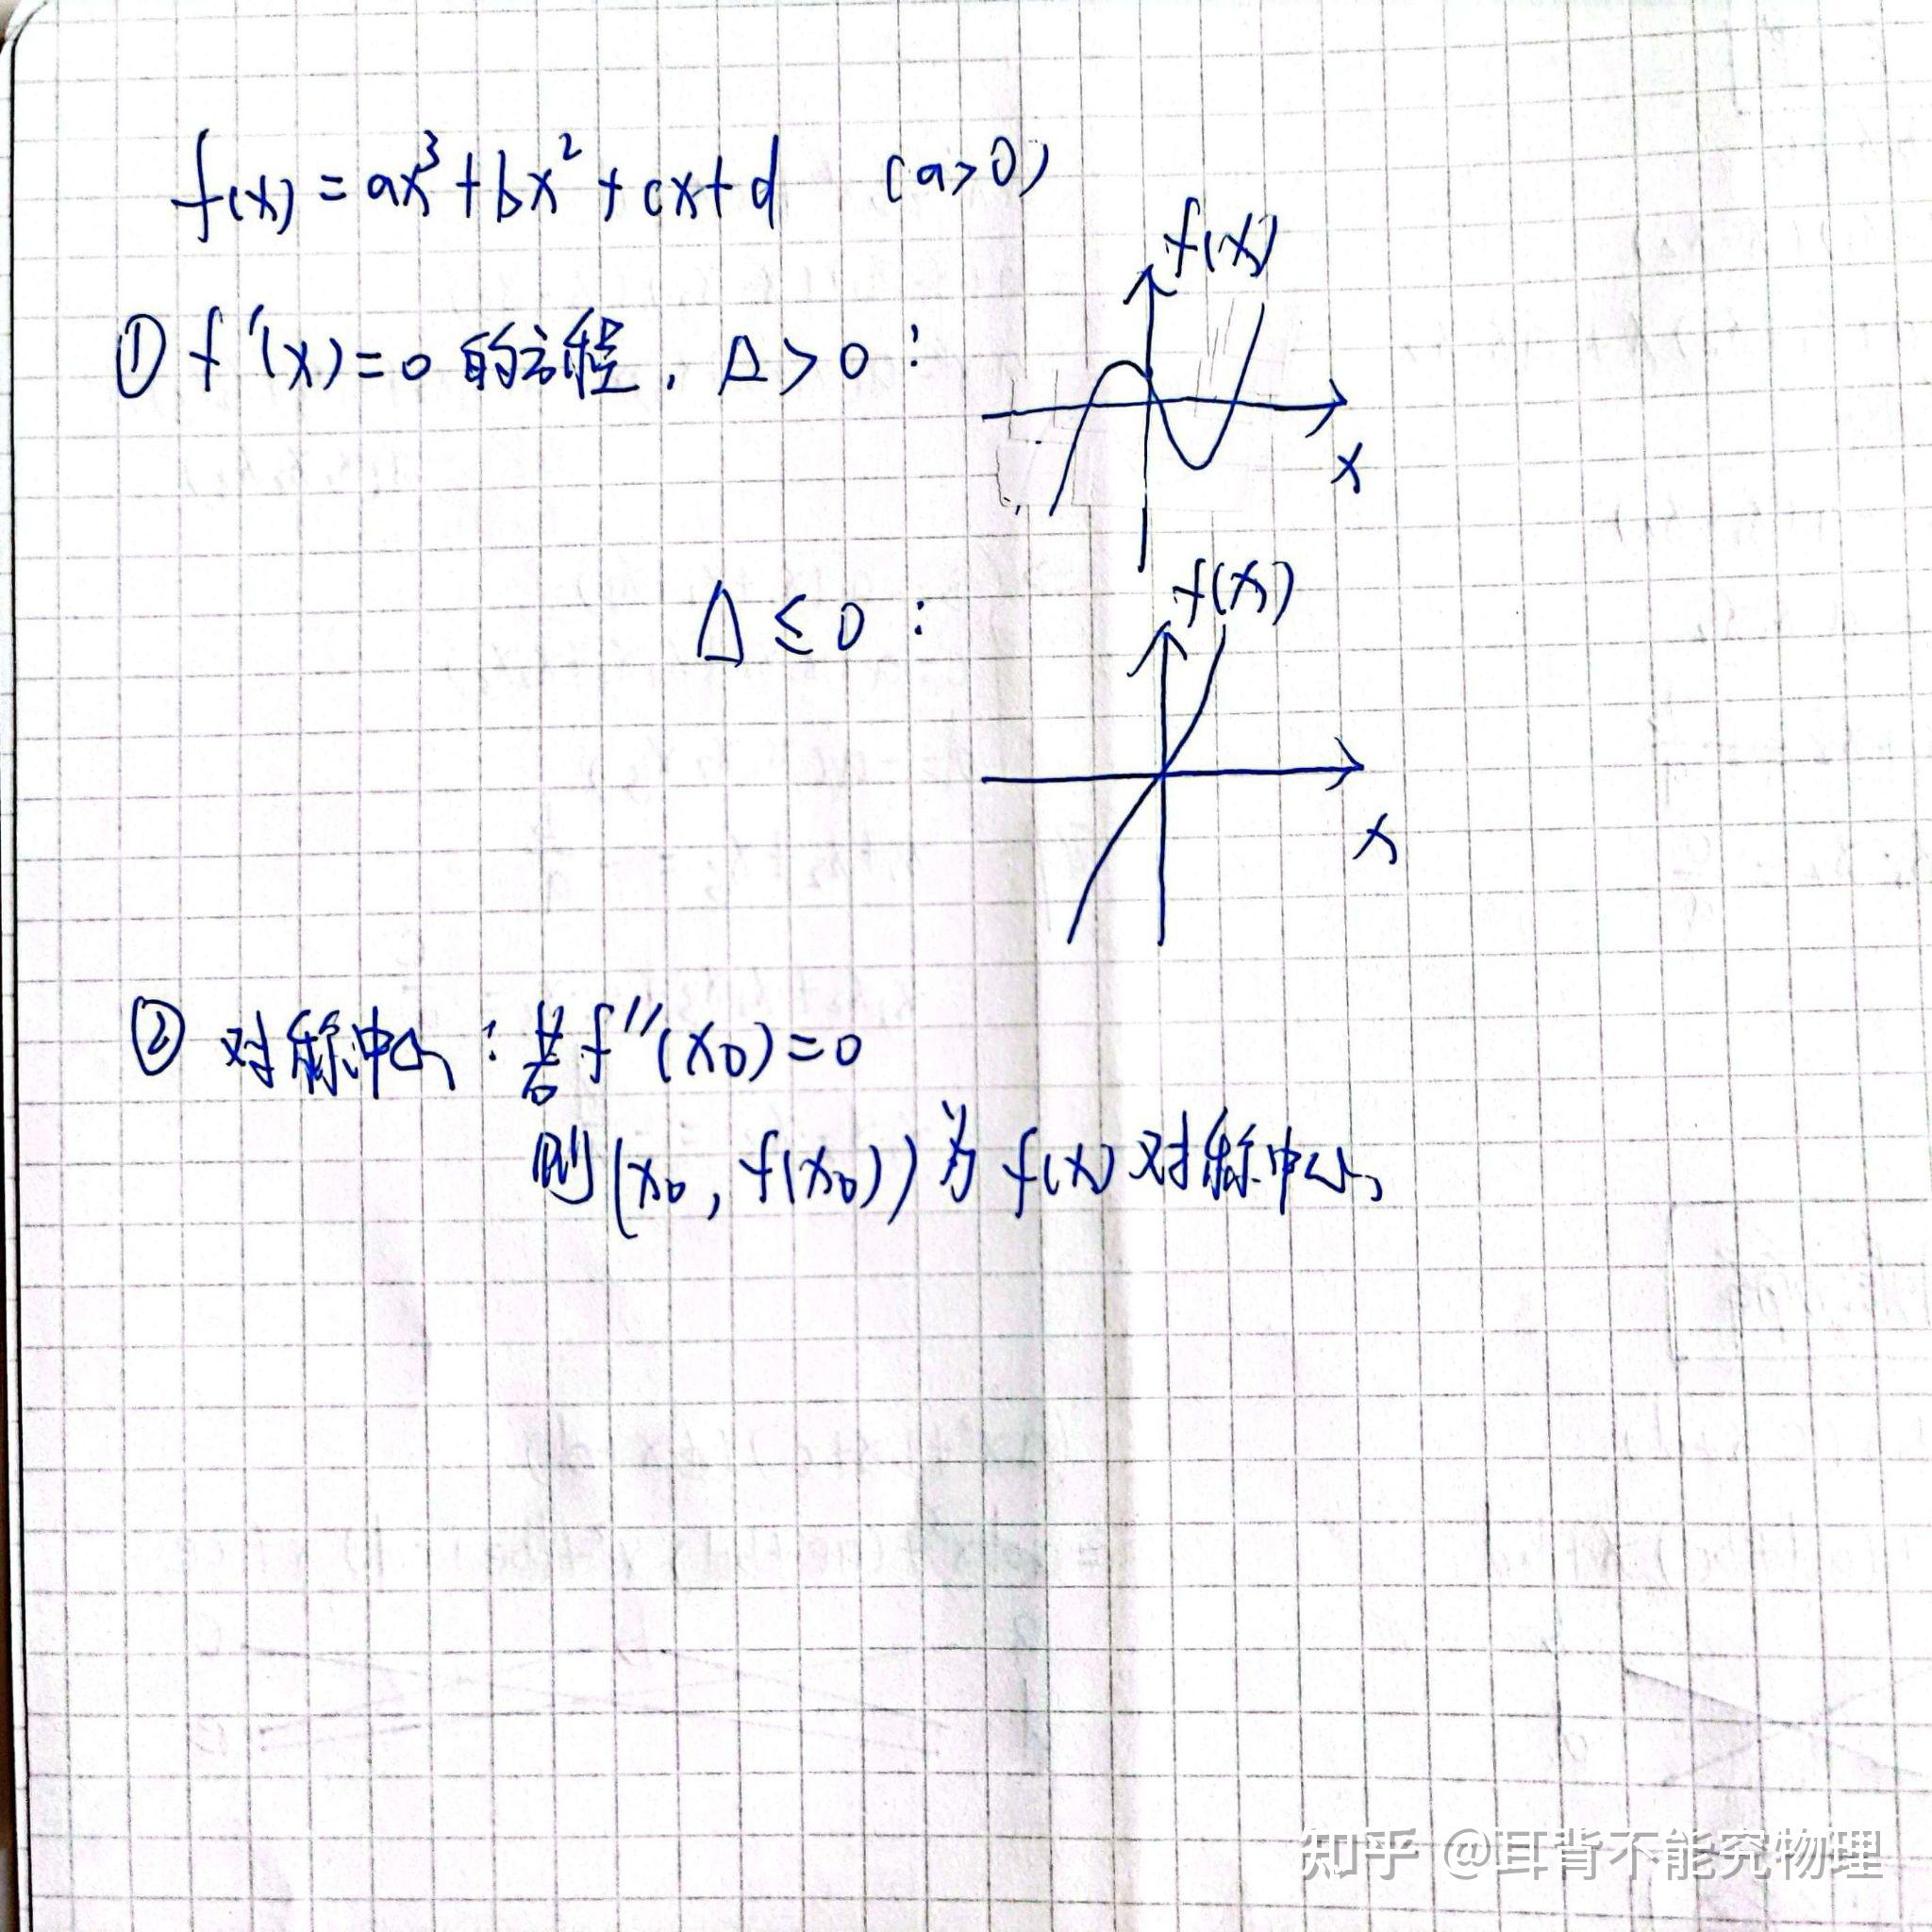 f(x)=ax³+bx²+cx+d (a>0)
① f'(x)=0 的方程, Δ>0:
f(x)
x
Δ≤0:
f(x)
x
② 对称中心:若f''(x₀)=0
则(x₀, f(x₀))为f(x)对称中心
知乎 @耳背不能究物理